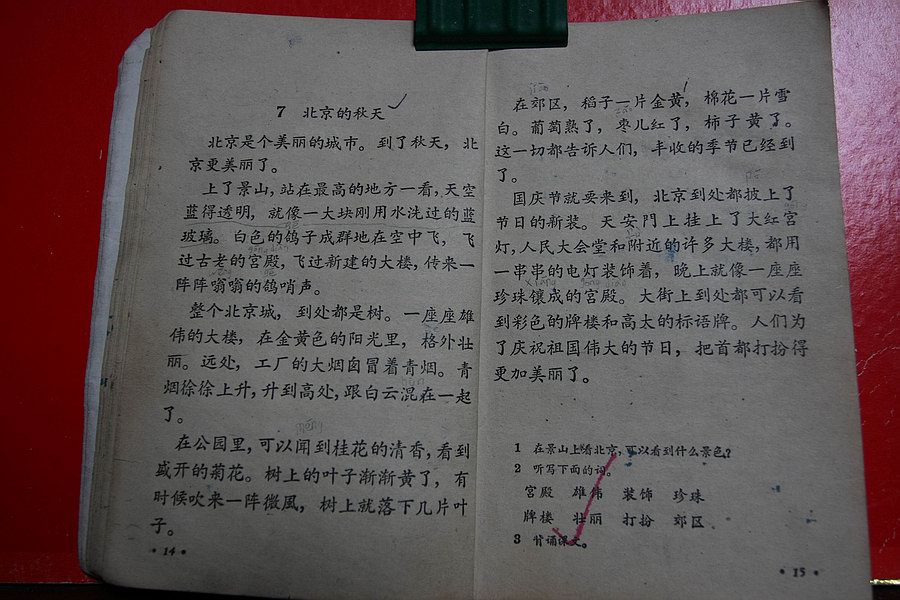 7 北京的秋天
北京是个美丽的城市。到了秋天，北
京更美丽了。
上了景山，站在最高的地方一看，天空
蓝得透明，就像一大块刚用水洗过的蓝
玻璃。白色的鸽子成群地在空中飞，飞
过古老的宫殿，飞过新建的大楼，传来一
阵阵嗡嗡的鸽哨声。
整个北京城，到处都是树。一座座雄
伟的大楼，在金黄色的阳光里，格外壮
丽。远处，工厂的大烟囱冒着青烟。青
烟徐徐上升，升到高处，跟白云混在一起
了。
在公园里，可以闻到桂花的清香，看到
盛开的菊花。树上的叶子渐渐黄了，有
时候吹来一阵微風，树上就落下几片叶
子。
• 14 •
在郊区，稻子一片金黄，棉花一片雪
白。葡萄熟了，枣儿红了，柿子黄了。
这一切都告诉人们，丰收的季节已经到
了。
国庆节就要来到，北京到处都披上了
节日的新装。天安門上挂上了大红宫
灯，人民大会堂和附近的许多大楼，都用
一串串的电灯装饰着，晚上就像一座座
珍珠镶成的宫殿。大街上到处都可以看
到彩色的牌楼和高大的标语牌。人们为
了庆祝祖国伟大的节日，把首都打扮得
更加美丽了。
1 在景山上看北京，可以看到什么景色？
2 听写下面的词。
宫殿 雄伟 装饰 珍珠
牌楼 壮丽 打扮 郊区
3 背诵课文。
• 15 •